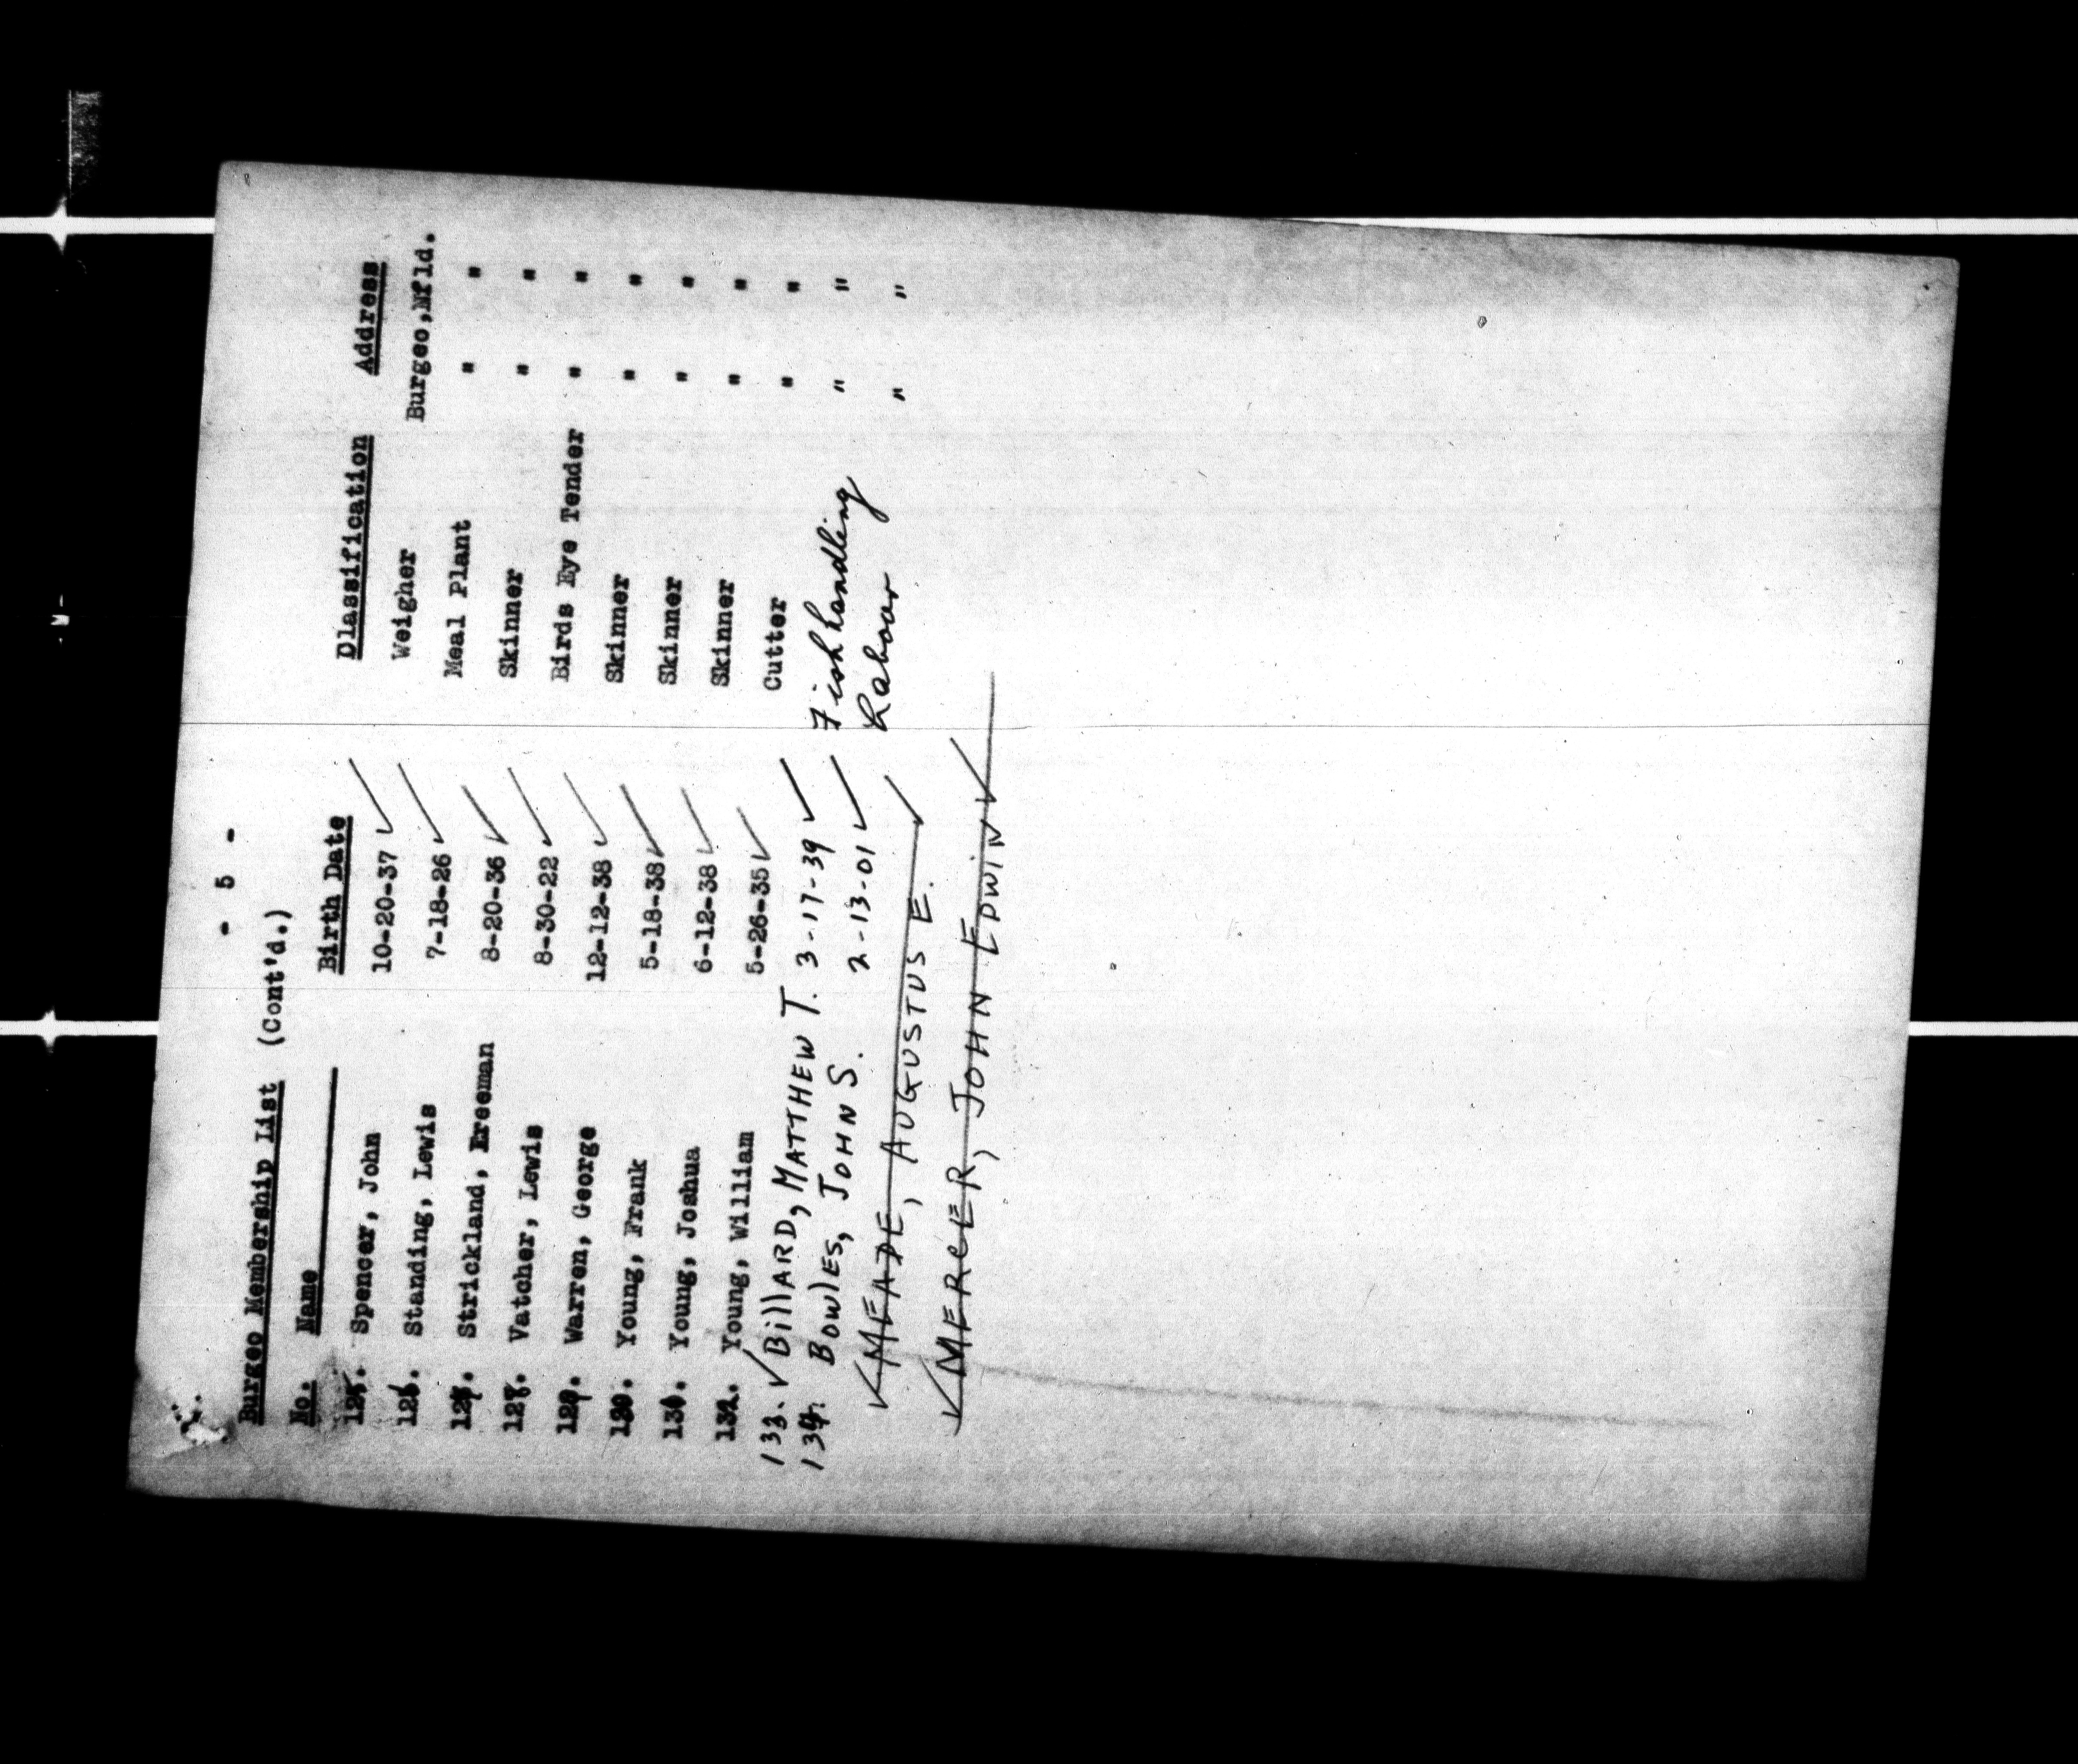 - 5 -
Burgeo Membership List (Cont'd.)
No. Name Birth Date Dlassification Address
125. Spencer, John 10-20-37 ✓ Weigher Burgeo,Nfld.
126. Standing, Lewis 7-18-26 ✓ Meal Plant " "
127. Strickland, Freeman 8-20-36 ✓ Skinner " "
128. Vatcher, Lewis 8-30-22 ✓ Birds Eye Tender " "
129. Warren, George 12-12-38 ✓ Skinner " "
130. Young, Frank 5-18-38 ✓ Skinner " "
131. Young, Joshua 6-12-38 ✓ Skinner " "
132. Young, William 5-26-35 ✓ Cutter " "
133. ✓ Billard, Matthew T. 3-17-39 ✓ Fish handling " "
134. Bowles, John S. 2-13-01 ✓ Labour " "
✓ MEADE, AUGUSTUS E. ✓
✓ MERCER, JOHN EDWIN ✓